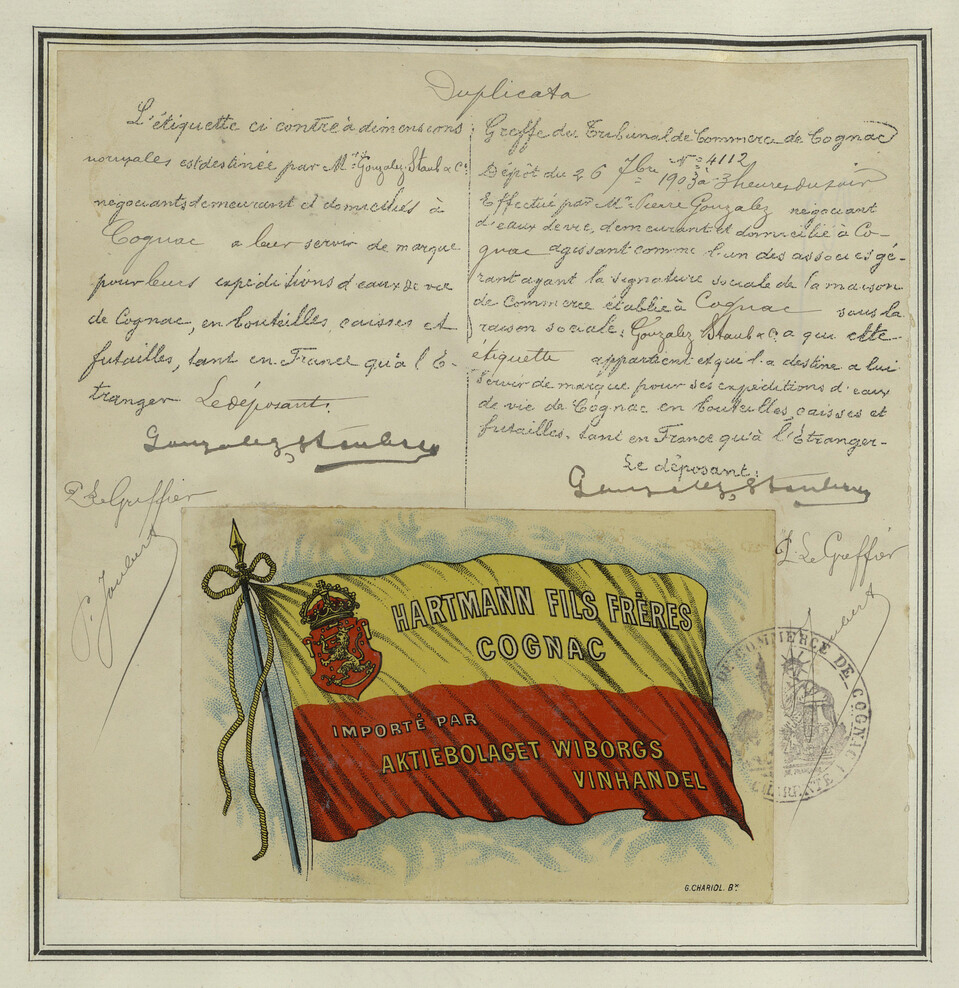 Duplicata
L'étiquette ci contre à dimensions
nouvales est destinée par M.rs Gonzalez, Staub & Cº
négociants demeurant et domiciliés à
Cognac a leur servir de marque
pour leurs expéditions d'eaux de vie
de Cognac, en bouteilles, caisses et
futailles, tant en France qu'à l'E-
tranger Le déposant.
Gonzalez, Staub & Co
P. Le Greffier
P. Joubert
Greffe du Tribunal de Commerce de Cognac
Nº 4112
Dépôt du 26 7bre 1903 à 3 heures du soir
Effectué par Mr. Pierre Gonzalez négociant
d'eaux de vie, demeurant et domicilié à Co-
gnac agissant comme l'un des associés gé-
rant ayant la signature sociale de la maison
de Commerce établie à Cognac sous la
raison sociale: Gonzalez Staub & Cº a qui cette
étiquette appartient et qui l'a destine a lui
servir de marque pour ses expéditions d'eaux
de vie de Cognac en bouteilles, caisses et
futailles. tant en France qu'à l'Etranger-
Le déposant:
Gonzalez, Staub & Co
P. Le Greffier
Joubert
HARTMANN FILS FRÈRES
COGNAC
IMPORTÉ PAR
AKTIEBOLAGET WIBORGS
VINHANDEL
G. CHARIOL. Bx
DE COMMERCE DE COGNAC
CHARENTE